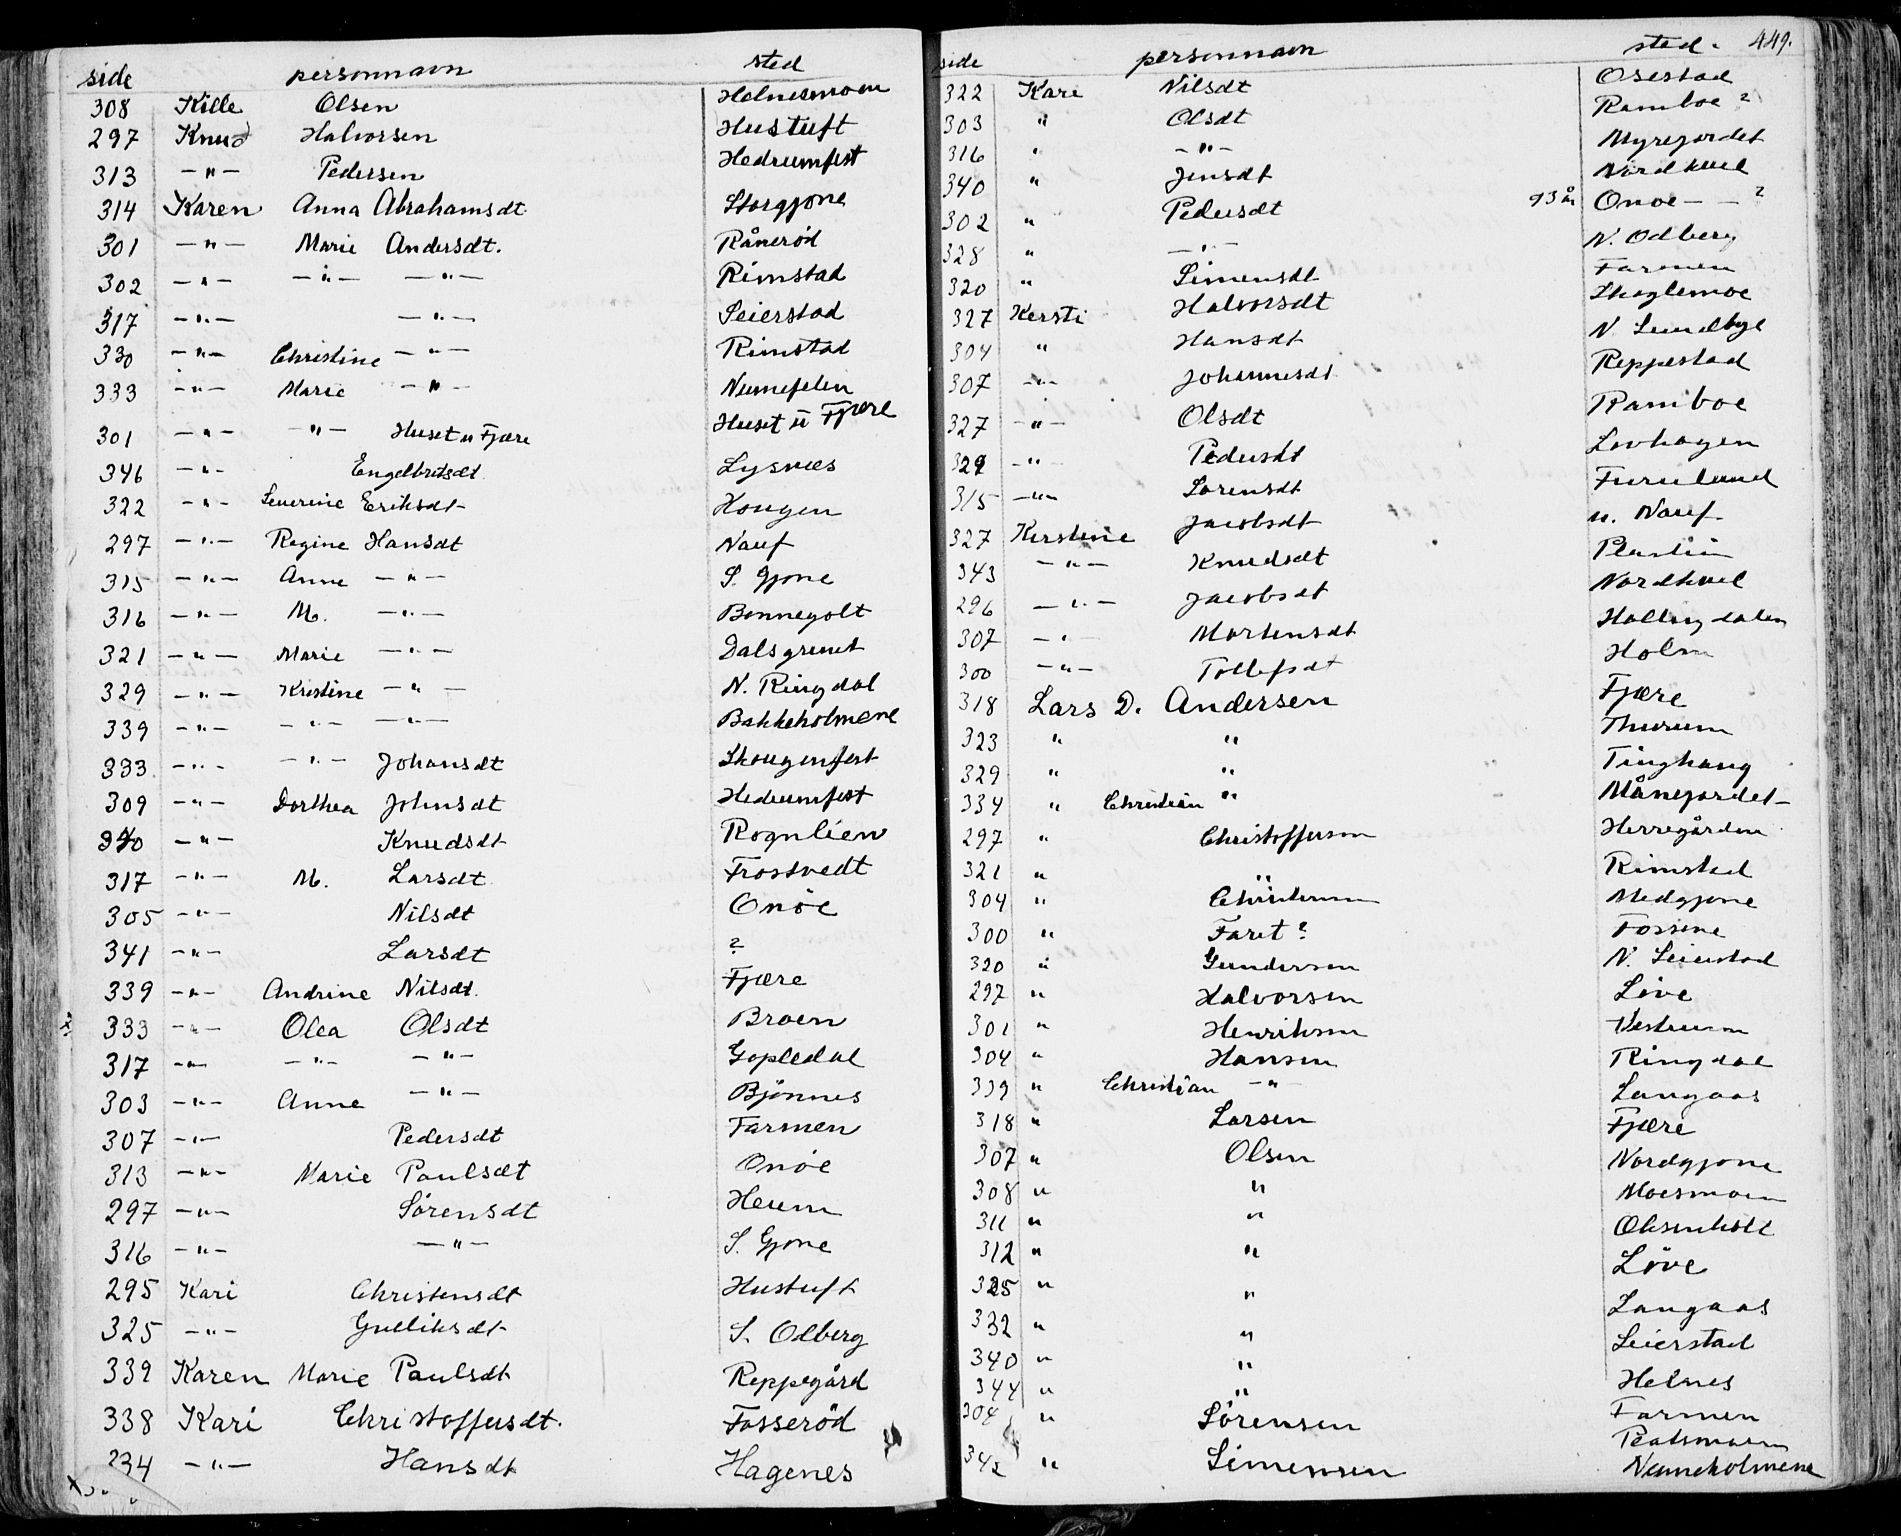 side personnavn sted
308 Kille Olsen Helnesmoen
297 Knud Halvorsen Hustuft
313 -"- Pedersen Hedrumfest
314 Karen Anna Abrahamsdt Storgjone
301 -"- Marie Andersdt. Rånerød
302 -"- -"- -"- Rimstad
317 -"- -"- Seierstad
330 -"- Christine -"- Rimstad
333 -"- Marie -"-
301 -"- -"- Huset u Fjære Huset u Fjære
346 -"- Engelbretsdt Lysnæs
322 -"- Severine Eriksdt Hougen
297 -"- Regine Hansdt Nauf
315 -"- Anne -"- S. Gjone
316 -"- M. -"- Bonnegolt
321 -"- Marie -"- Dalsgrenet
329 -"- Kristine -"- N. Ringdal
339 -"- -"- -"- Bakkeholmene
333 -"- -"- Johansdt Skougenfest
309 -"- Dorthea Johnsdt Hedrumfest
340 -"- Knudsdt Rognlien
317 -"- M. Larsdt Frostvedt
305 -"- Nilsdt Onöe
341 -"- Larsdt ?
339 -"- Andrine Nilsdt. Fjære
333 -"- Olea Olsdt Broen
317 -"- -"- -"- Gopledal
303 -"- Anne -"- Bjönnes
307 -"- Pedersdt Farmen
313 -"- Marie Paulsdt Onöe
297 -"- Sörensdt Heum
316 -"- -"- S. Gjone
295 Kari Christensdt Hustuft
325 -"- Gulliksdt S. Odberg
339 Karen Marie Paulsdt Reppegård
338 Kari Christoffersdt. Fosserød
334 -"- Hansdt Hagenes
side personnavn sted. 449.
322 Kari Nilsdt Osestad
303 " Olsdt Ramboe ?
316 " -"- Myrejordet
340 " Jensdt Nordkvel
302 " Pedersdt 93 år Onoe - - ?
328 " -"- N. Odberg
320 " Simensdt Farmen
327 Kersti Halvorsdt Skoglemoe
304 " Hansdt N Sundbye
307 -"- Johannesdt Reppestad
327 -"- Olsdt Ramboe
329 -"- Pedersdt Lovhagen
315 -"- Sorensdt Furulund
327 Kerstine Jacobsdt u. Nauf
343 -"- Knudsdt
296 -"- Jacobsdt Nordkvel
307 -"- Mortensdt Hallingdalen
300 -"- Tollefsdt Holm
318 Lars D. Andersen Fjære
323 " " Thurum
329 " " Tinghaug
334 " Christian " Månejordet
297 " Christoffersen Herregården
321 " " Rimstad
304 " Christensen Medgjone
300 " Faret ? Fossene
320 " Gundersen N. Seierstad
297 " Halvorsen Löve
301 " Henriksen Vestrum
304 " Hansen Ringdal
339 " Christian -"- Langaas
318 " Larsen Fjære
307 " Olsen Nordgjone
308 " " Moesmoen
311 " " Oksenholt
312 " " Löve
325 " " Langaas
332 " " Seierstad
340 " " Helnes
344 " " Farmen
304 " Sörensen
342 " Simensen Nanneholmene